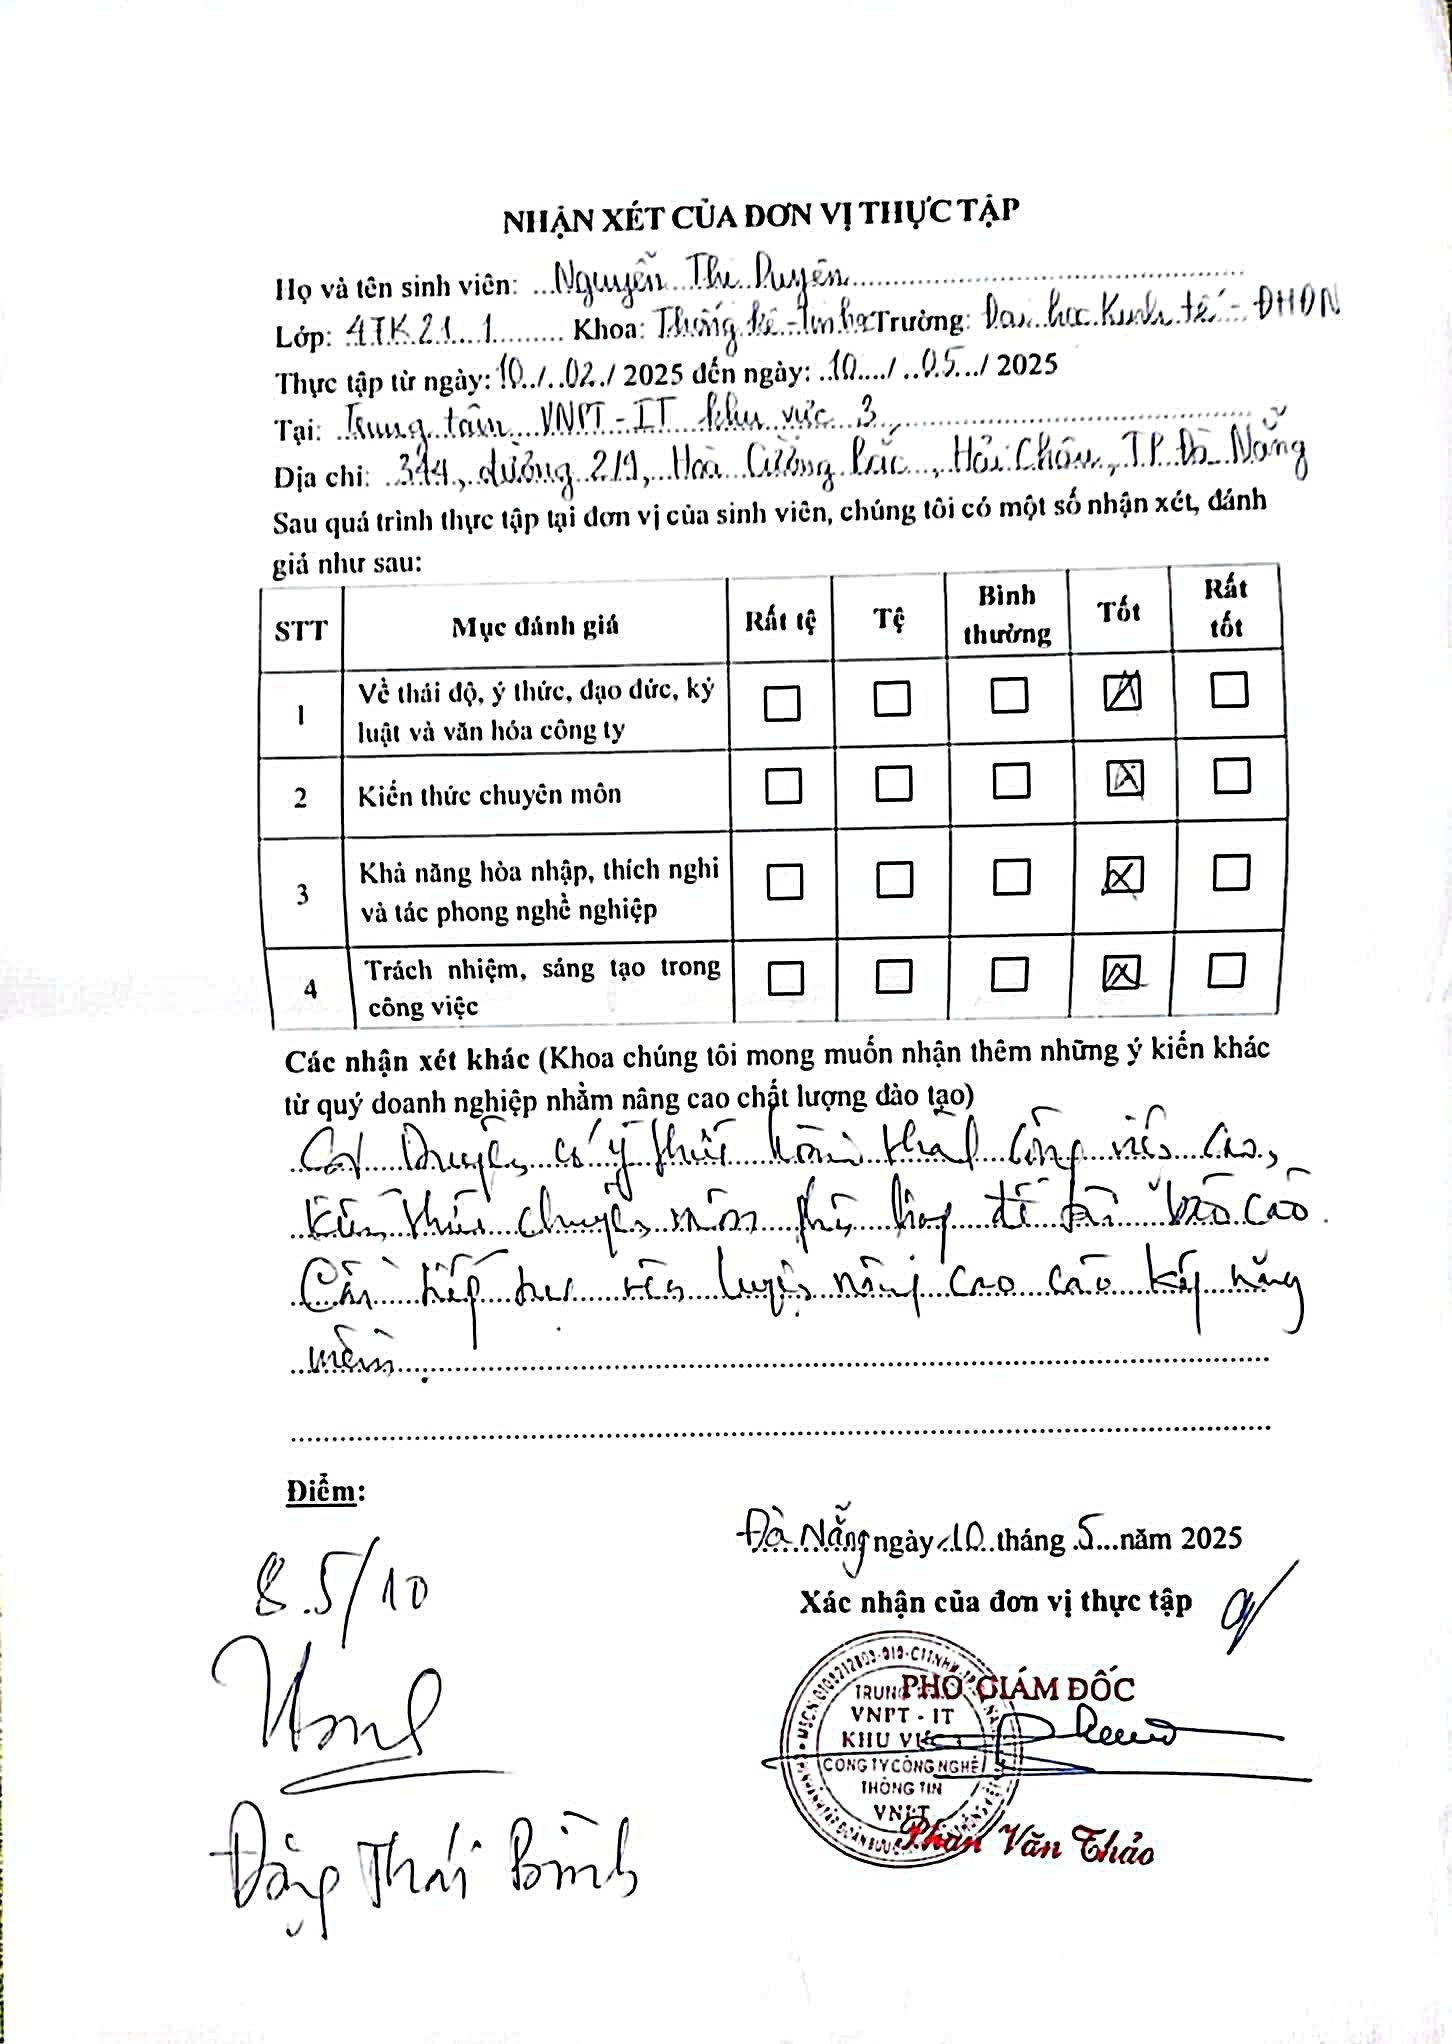 NHẬN XÉT CỦA ĐƠN VỊ THỰC TẬP
Họ và tên sinh viên: Nguyễn Thị Duyên
Lớp: 47K21.1 Khoa: Thống kê - Tin học Trường: Đại học Kinh tế - ĐHĐN
Thực tập từ ngày: 10 / 02 / 2025 đến ngày: 10 / 05 / 2025
Tại: Trung tâm VNPT - IT khu vực 3
Địa chỉ: 344, đường 2/9, Hoà Cường Bắc, Hải Châu, TP Đà Nẵng
Sau quá trình thực tập tại đơn vị của sinh viên, chúng tôi có một số nhận xét, đánh
giá như sau:
STT Mục đánh giá Rất tệ Tệ Bình thường Tốt Rất tốt
1 Về thái độ, ý thức, đạo đức, kỷ
luật và văn hóa công ty
2 Kiến thức chuyên môn
3 Khả năng hòa nhập, thích nghi
và tác phong nghề nghiệp
4 Trách nhiệm, sáng tạo trong
công việc
Các nhận xét khác (Khoa chúng tôi mong muốn nhận thêm những ý kiến khác
từ quý doanh nghiệp nhằm nâng cao chất lượng đào tạo)
Duyên có ý thức hoàn thành công việc cao,
kiến thức chuyên môn phù hợp đề tài báo cáo.
Cần tiếp tục rèn luyện nâng cao các kỹ năng
mềm.
Điểm:
8.5/10
Đà Nẵng ngày 10 tháng 5 năm 2025
Xác nhận của đơn vị thực tập
PHÓ GIÁM ĐỐC
VNPT - IT
CÔNG TY CÔNG NGHỆ
THÔNG TIN
VNPT
Phan Văn Thảo
Đặng Thái Bình